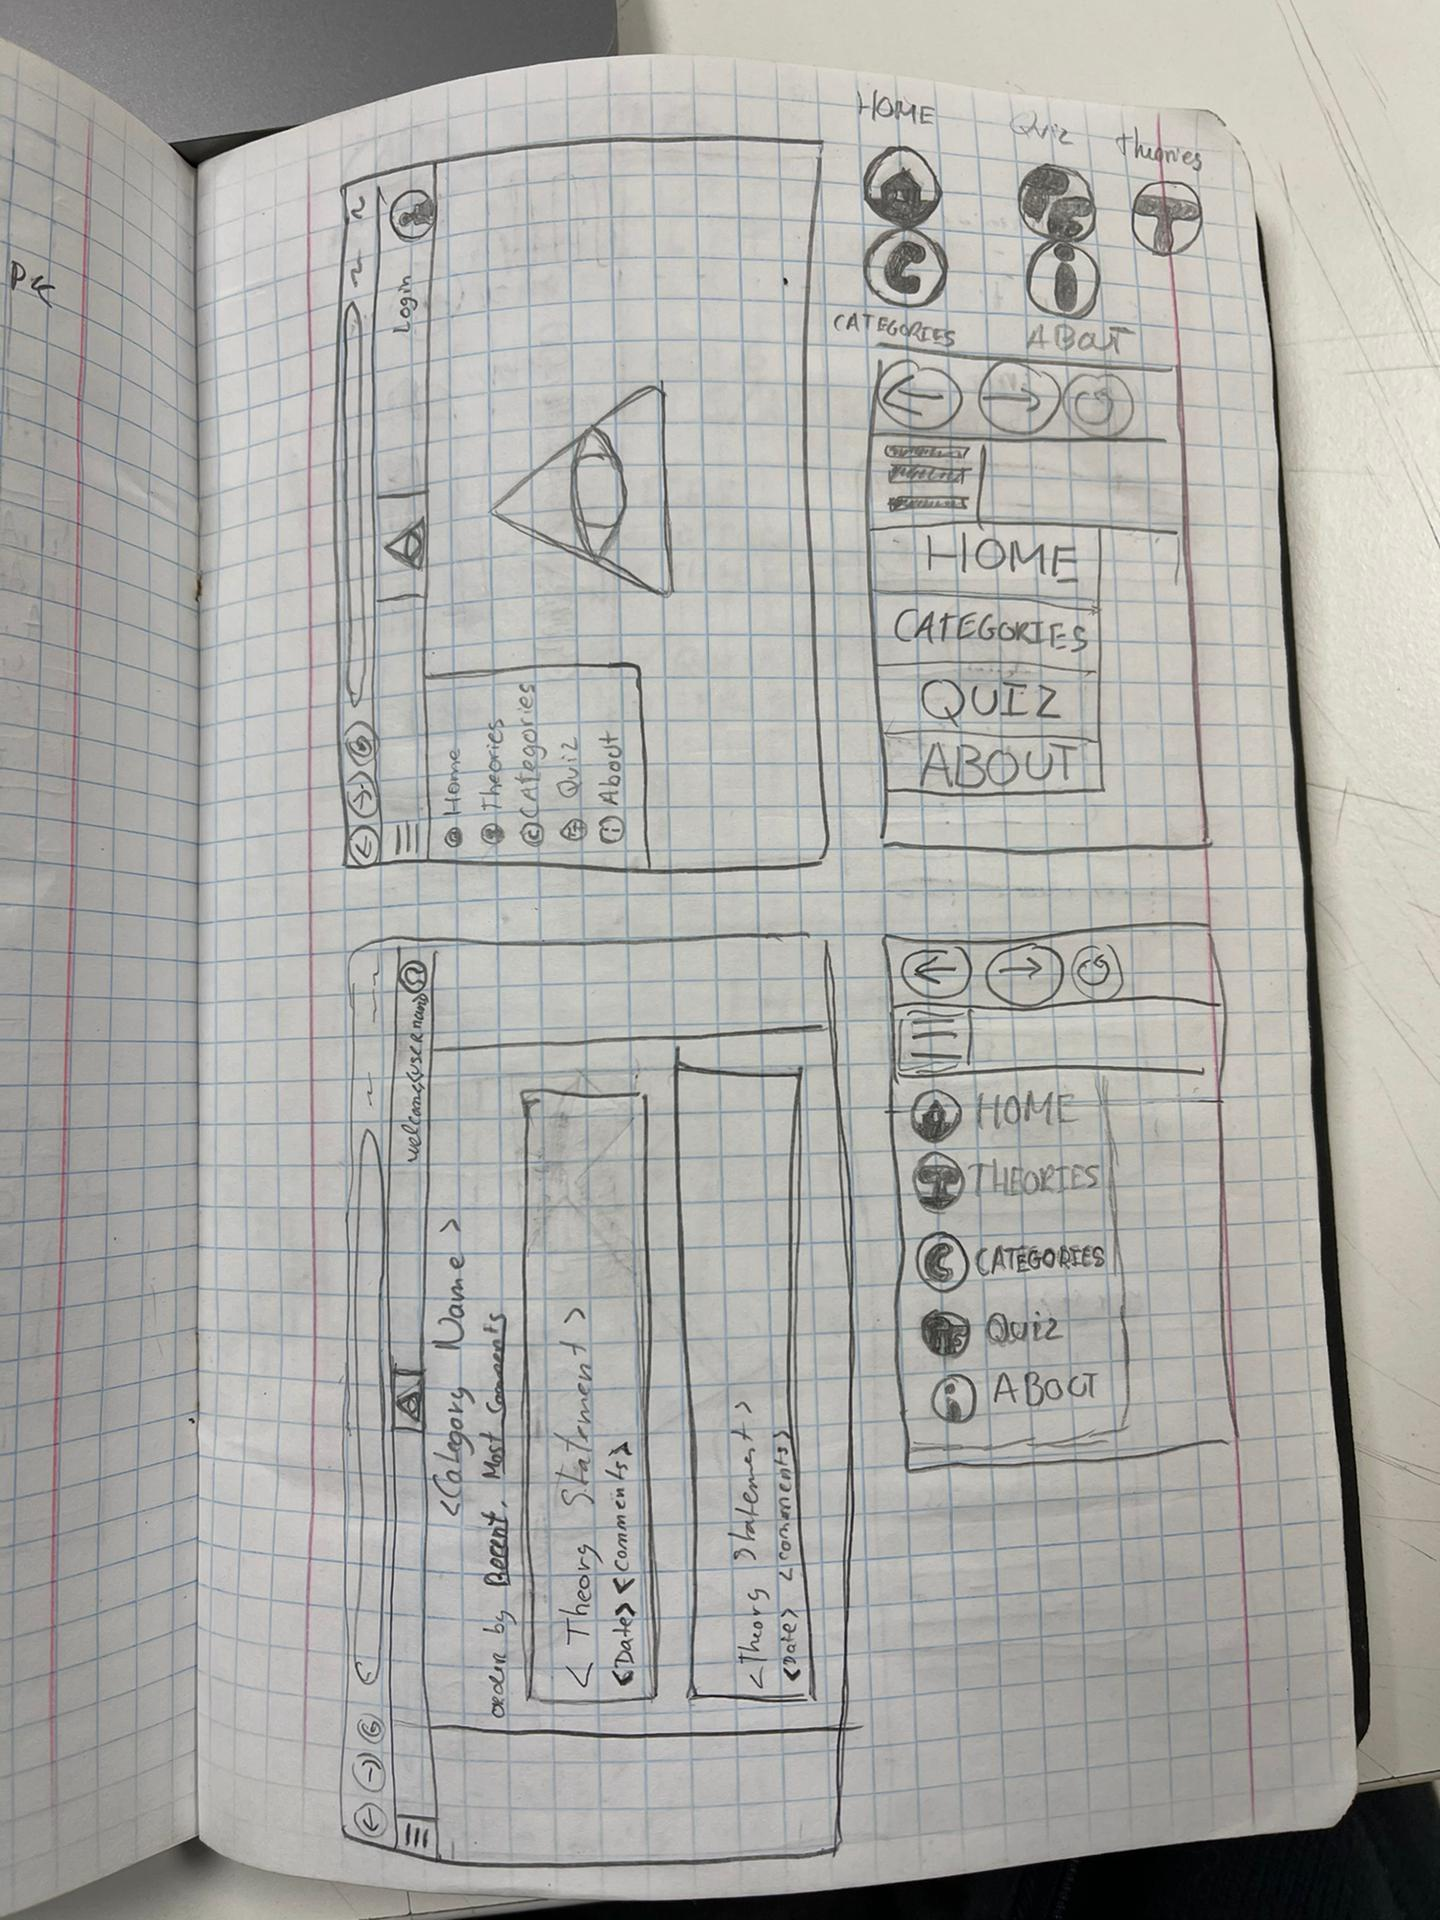 HOME
Quiz
Theories
CATEGORIES
ABOUT
Login
Home
Theories
CAtegories
Quiz
About
HOME
CATEGORIES
QUIZ
ABOUT
welcome,<username>
<Category Name>
order by Recent, Most Comments
<Theory Statement>
<Date> <Comments>
<Theory Statement>
<Date> <comments>
HOME
THEORIES
CATEGORIES
Quiz
ABOUT